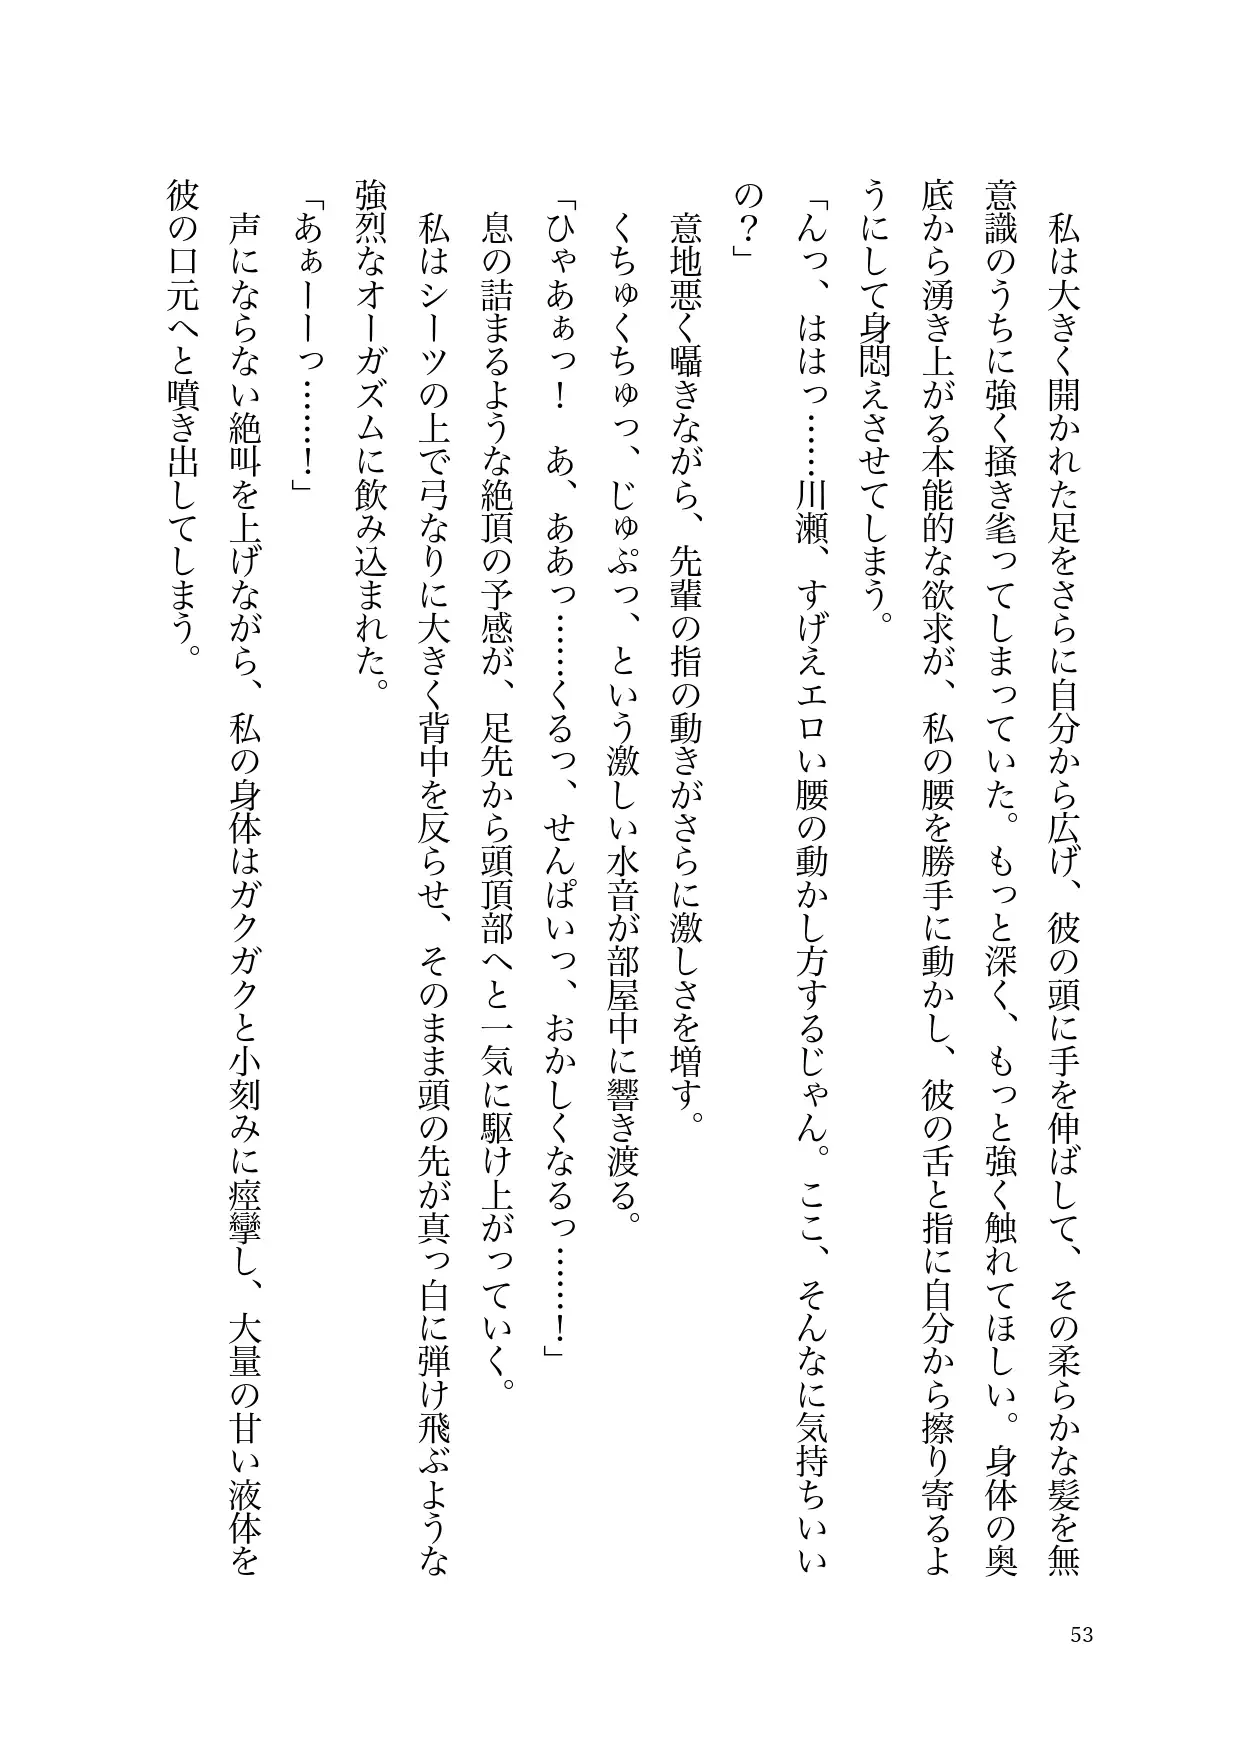 私は大きく開かれた足をさらに自分から広げ、彼の頭に手を伸ばして、その柔らかな髪を無
意識のうちに強く掻き毟ってしまっていた。もっと深く、もっと強く触れてほしい。身体の奥
底から湧き上がる本能的な欲求が、私の腰を勝手に動かし、彼の舌と指に自分から擦り寄るよ
うにして身悶えさせてしまう。
「んっ、ははっ……川瀬、すげえエロい腰の動かし方するじゃん。ここ、そんなに気持ちいい
の？」
意地悪く囁きながら、先輩の指の動きがさらに激しさを増す。
くちゅくちゅっ、じゅぷっ、という激しい水音が部屋中に響き渡る。
「ひゃあぁっ！　あ、ああっ……くるっ、せんぱいっ、おかしくなるっ……！」
息の詰まるような絶頂の予感が、足先から頭頂部へと一気に駆け上がっていく。
私はシーツの上で弓なりに大きく背中を反らせ、そのまま頭の先が真っ白に弾け飛ぶような
強烈なオーガズムに飲み込まれた。
「あぁーーっ……！」
声にならない絶叫を上げながら、私の身体はガクガクと小刻みに痙攣し、大量の甘い液体を
彼の口元へと噴き出してしまう。
53